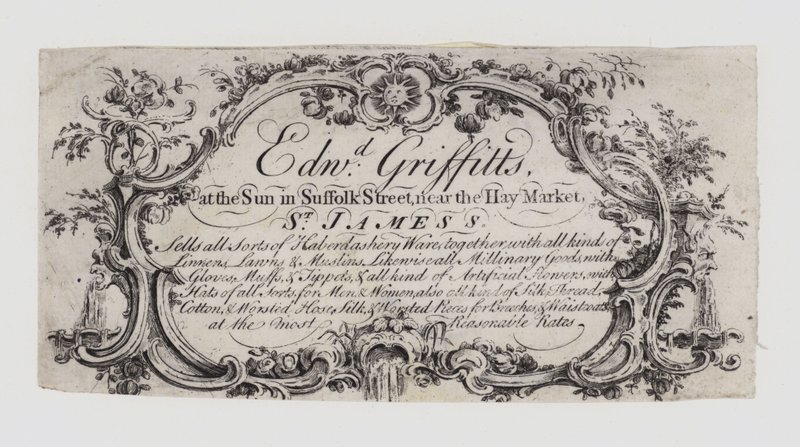 Edw.d Griffitts,
at the Sun in Suffolk Street, near the Hay Market,
St. JAMES'S.
Sells all Sorts of Haberdashery Ware, together with all kinds of
Linnens, Lawns & Muslins, Likewise all Millinary Goods, with
Gloves, Muffs, & Tippets, & all kind of Artificial Flowers, with
Hats of all Sorts, for Men, & Women, also all kind of Silk Thread,
Cotton, & Worsted Hose, Silk, & Worsted Pieces for Breeches, & Waistcoats,
at the most Reasonable Rates.